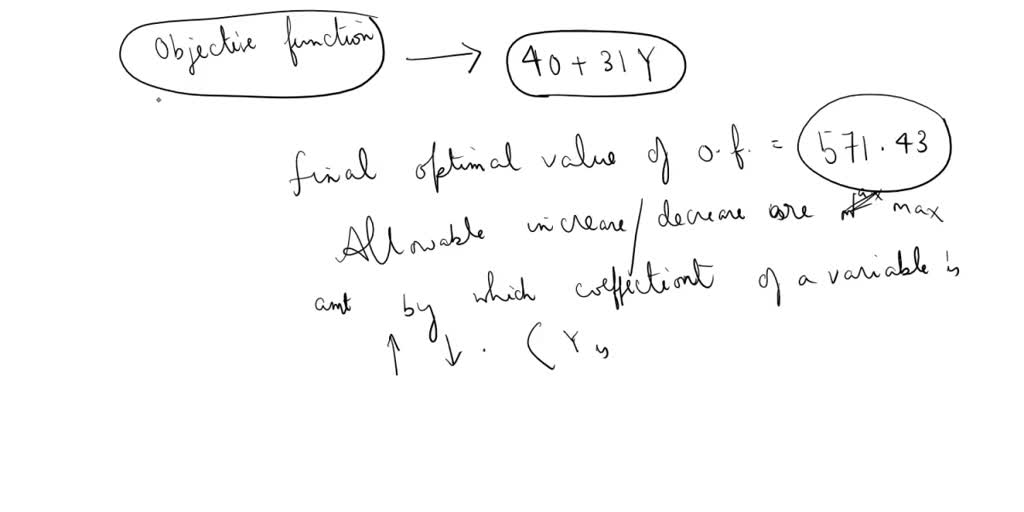 Objective function → 40 + 31 Y
final optimal value of o.f. = 571.43
Allowable increase/decrease are max
amt by which coeffectiont of a variable is
↑ ↓. (Y is